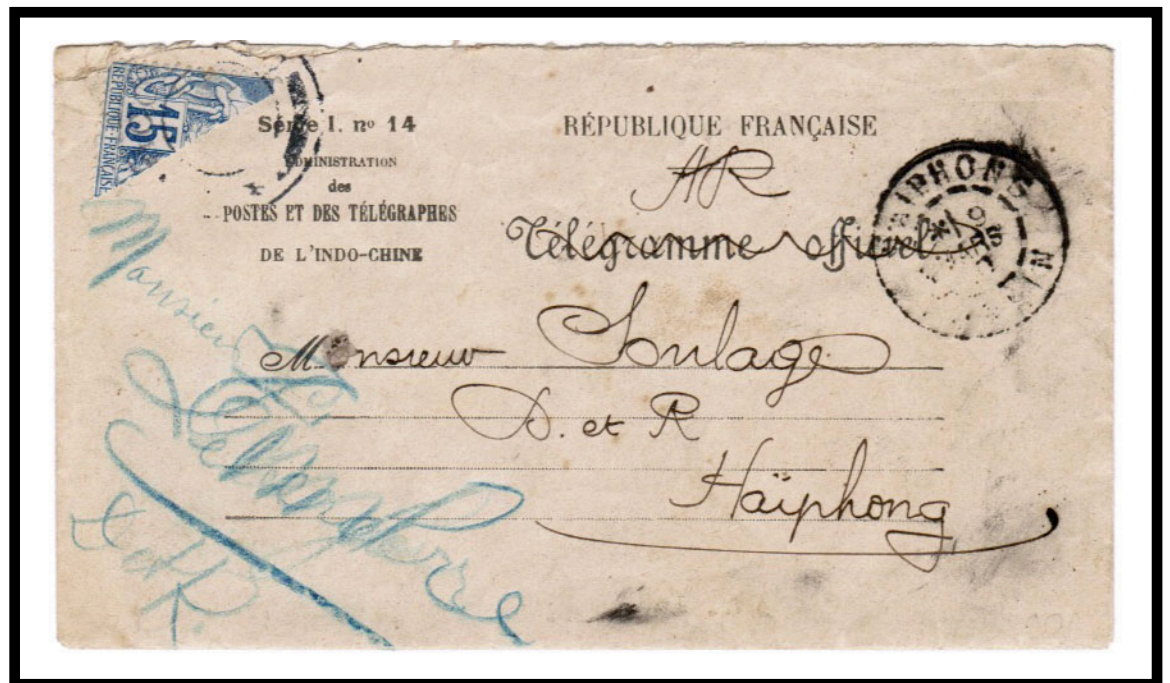 REPUBLIQUE FRANÇAISE
15
Série I. nº 14
ADMINISTRATION
des
POSTES ET DES TÉLÉGRAPHES
DE L'INDO-CHINE
RÉPUBLIQUE FRANÇAISE
AR
Télégramme officiel
HAIPHONG
Monsieur Soulage
D. et R
Haïphong
Monsieur
D et R.